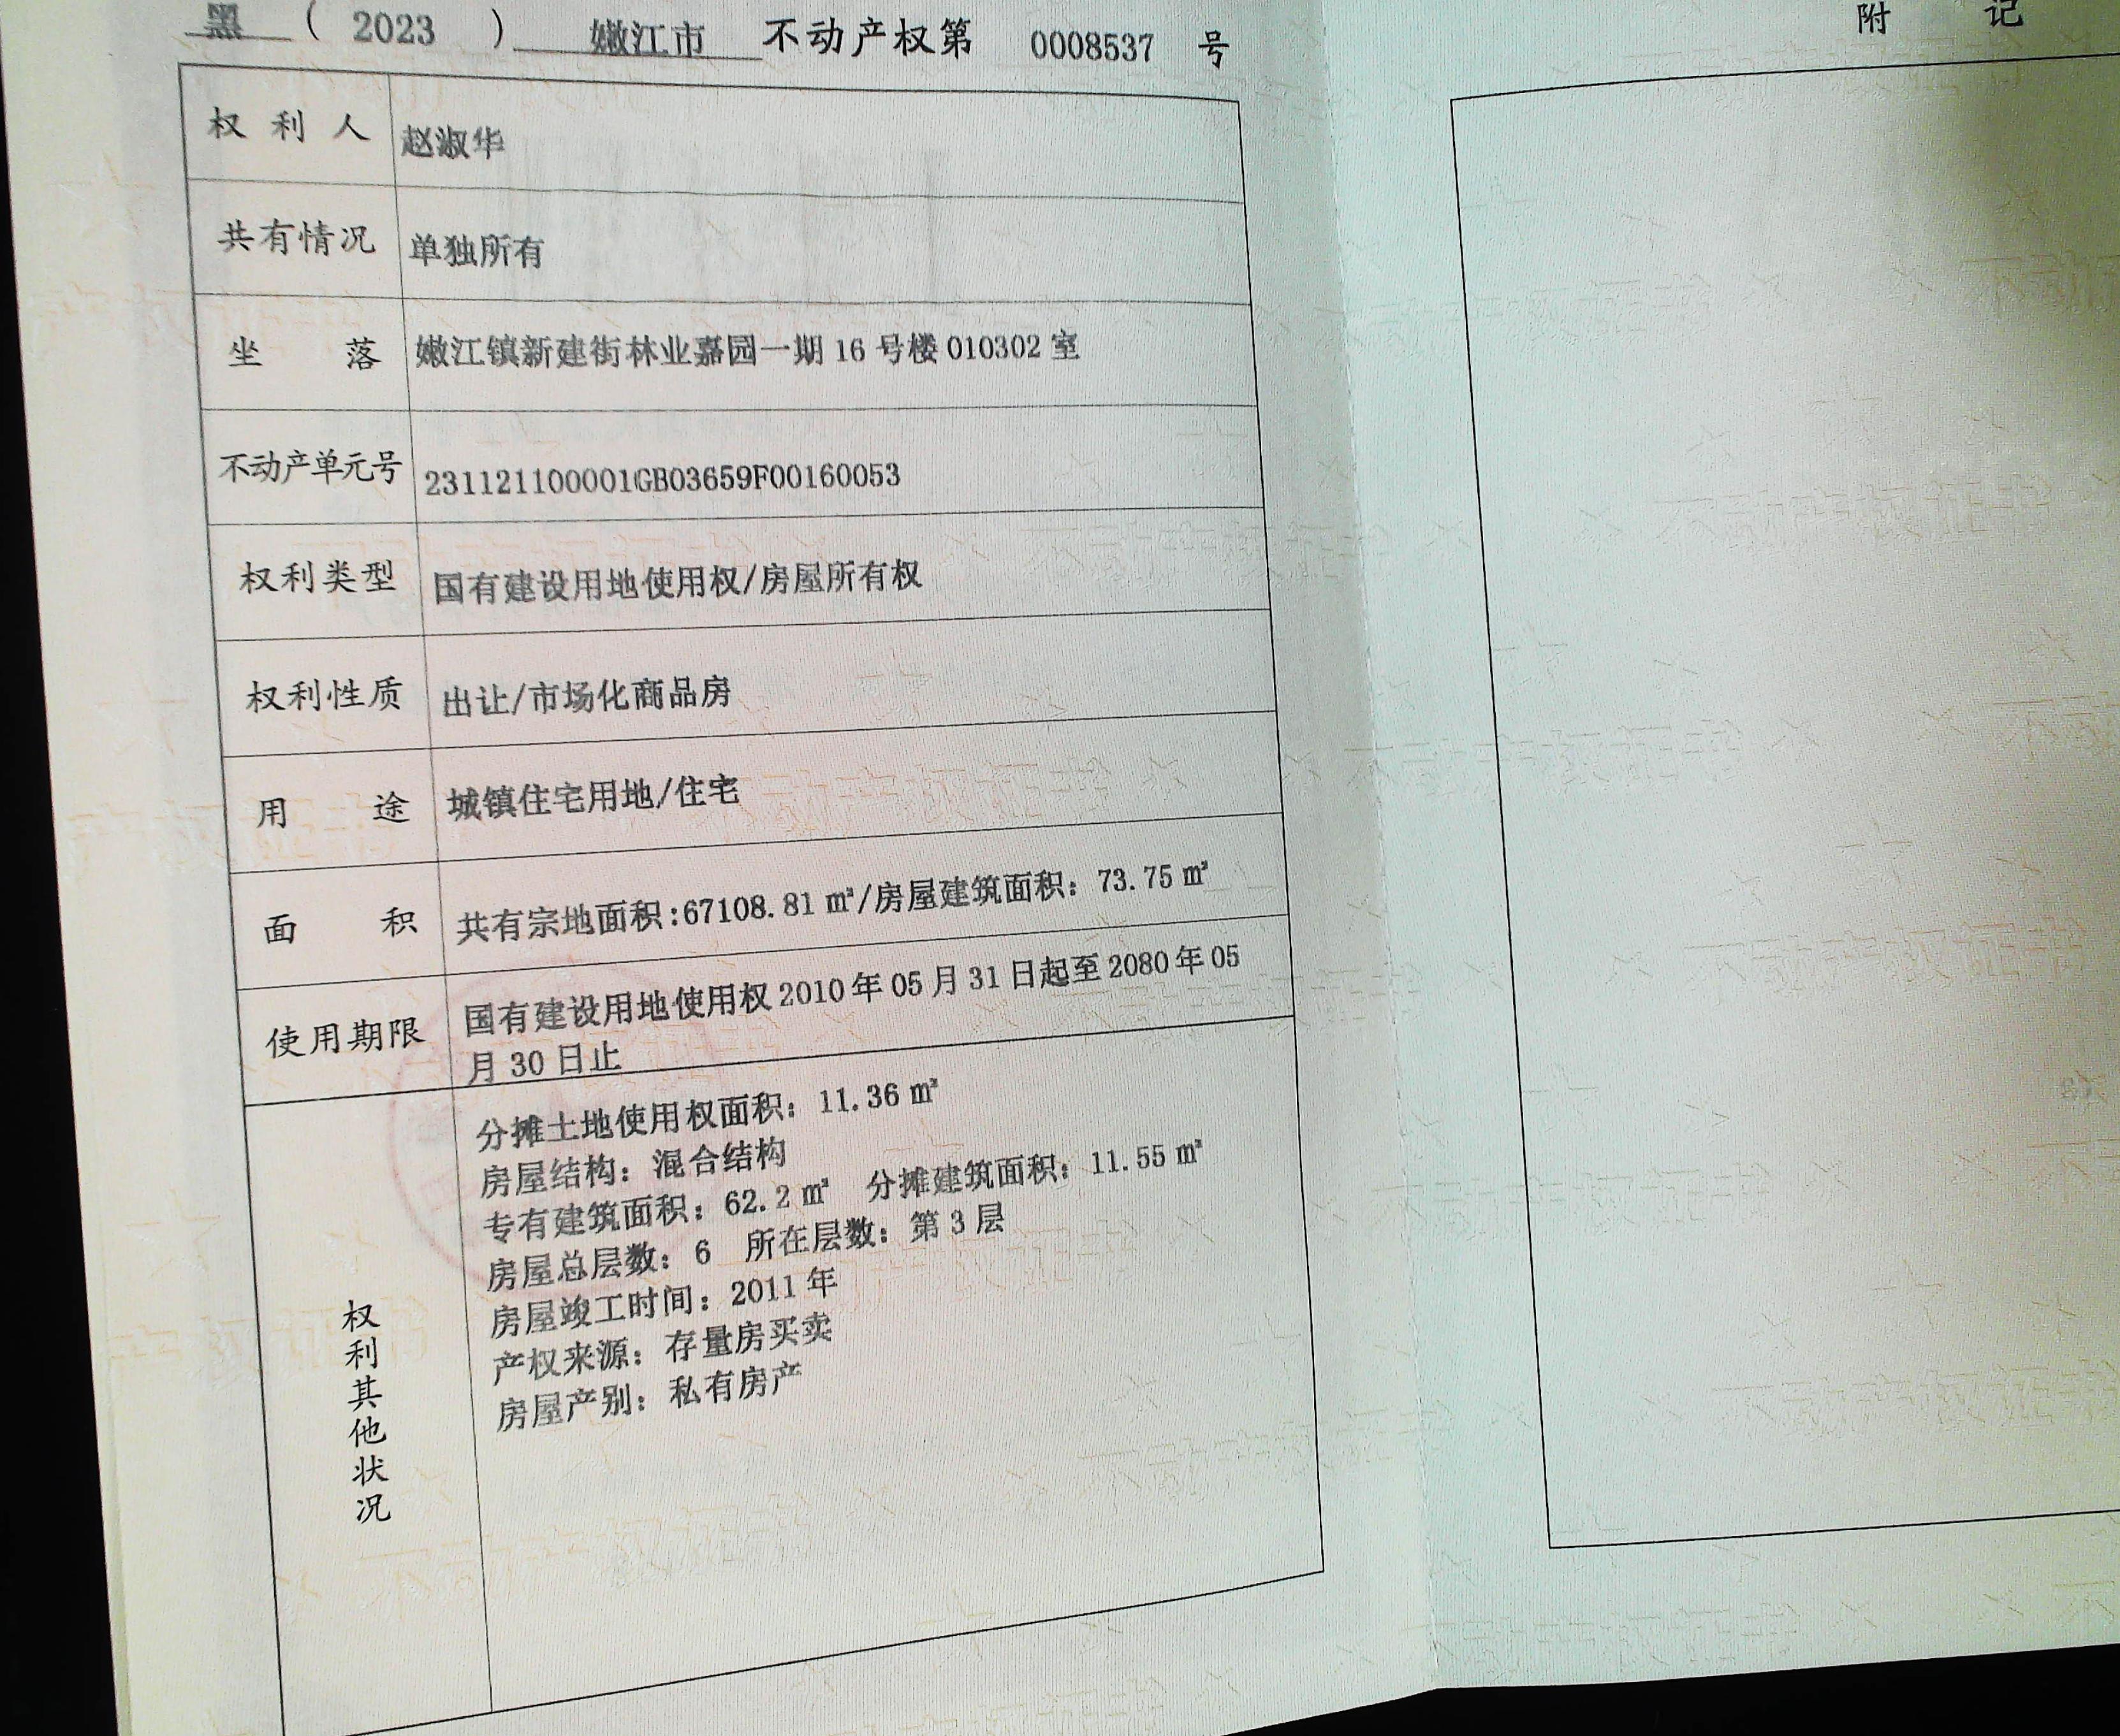 黑（2023）嫩江市 不动产权第 0008537 号
附 记
权利人 赵淑华
共有情况 单独所有
坐落 嫩江镇新建街林业嘉园一期 16 号楼 010302 室
不动产单元号 231121100001GB03659F00160053
权利类型 国有建设用地使用权/房屋所有权
权利性质 出让/市场化商品房
用途 城镇住宅用地/住宅
面积 共有宗地面积:67108.81 ㎡/房屋建筑面积：73.75 ㎡
使用期限 国有建设用地使用权 2010 年 05 月 31 日起至 2080 年 05
月 30 日止
权利其他状况
分摊土地使用权面积：11.36 ㎡
房屋结构：混合结构
专有建筑面积：62.2 ㎡ 分摊建筑面积：11.55 ㎡
房屋总层数：6 所在层数：第 3 层
房屋竣工时间：2011 年
产权来源：存量房买卖
房屋产别：私有房产